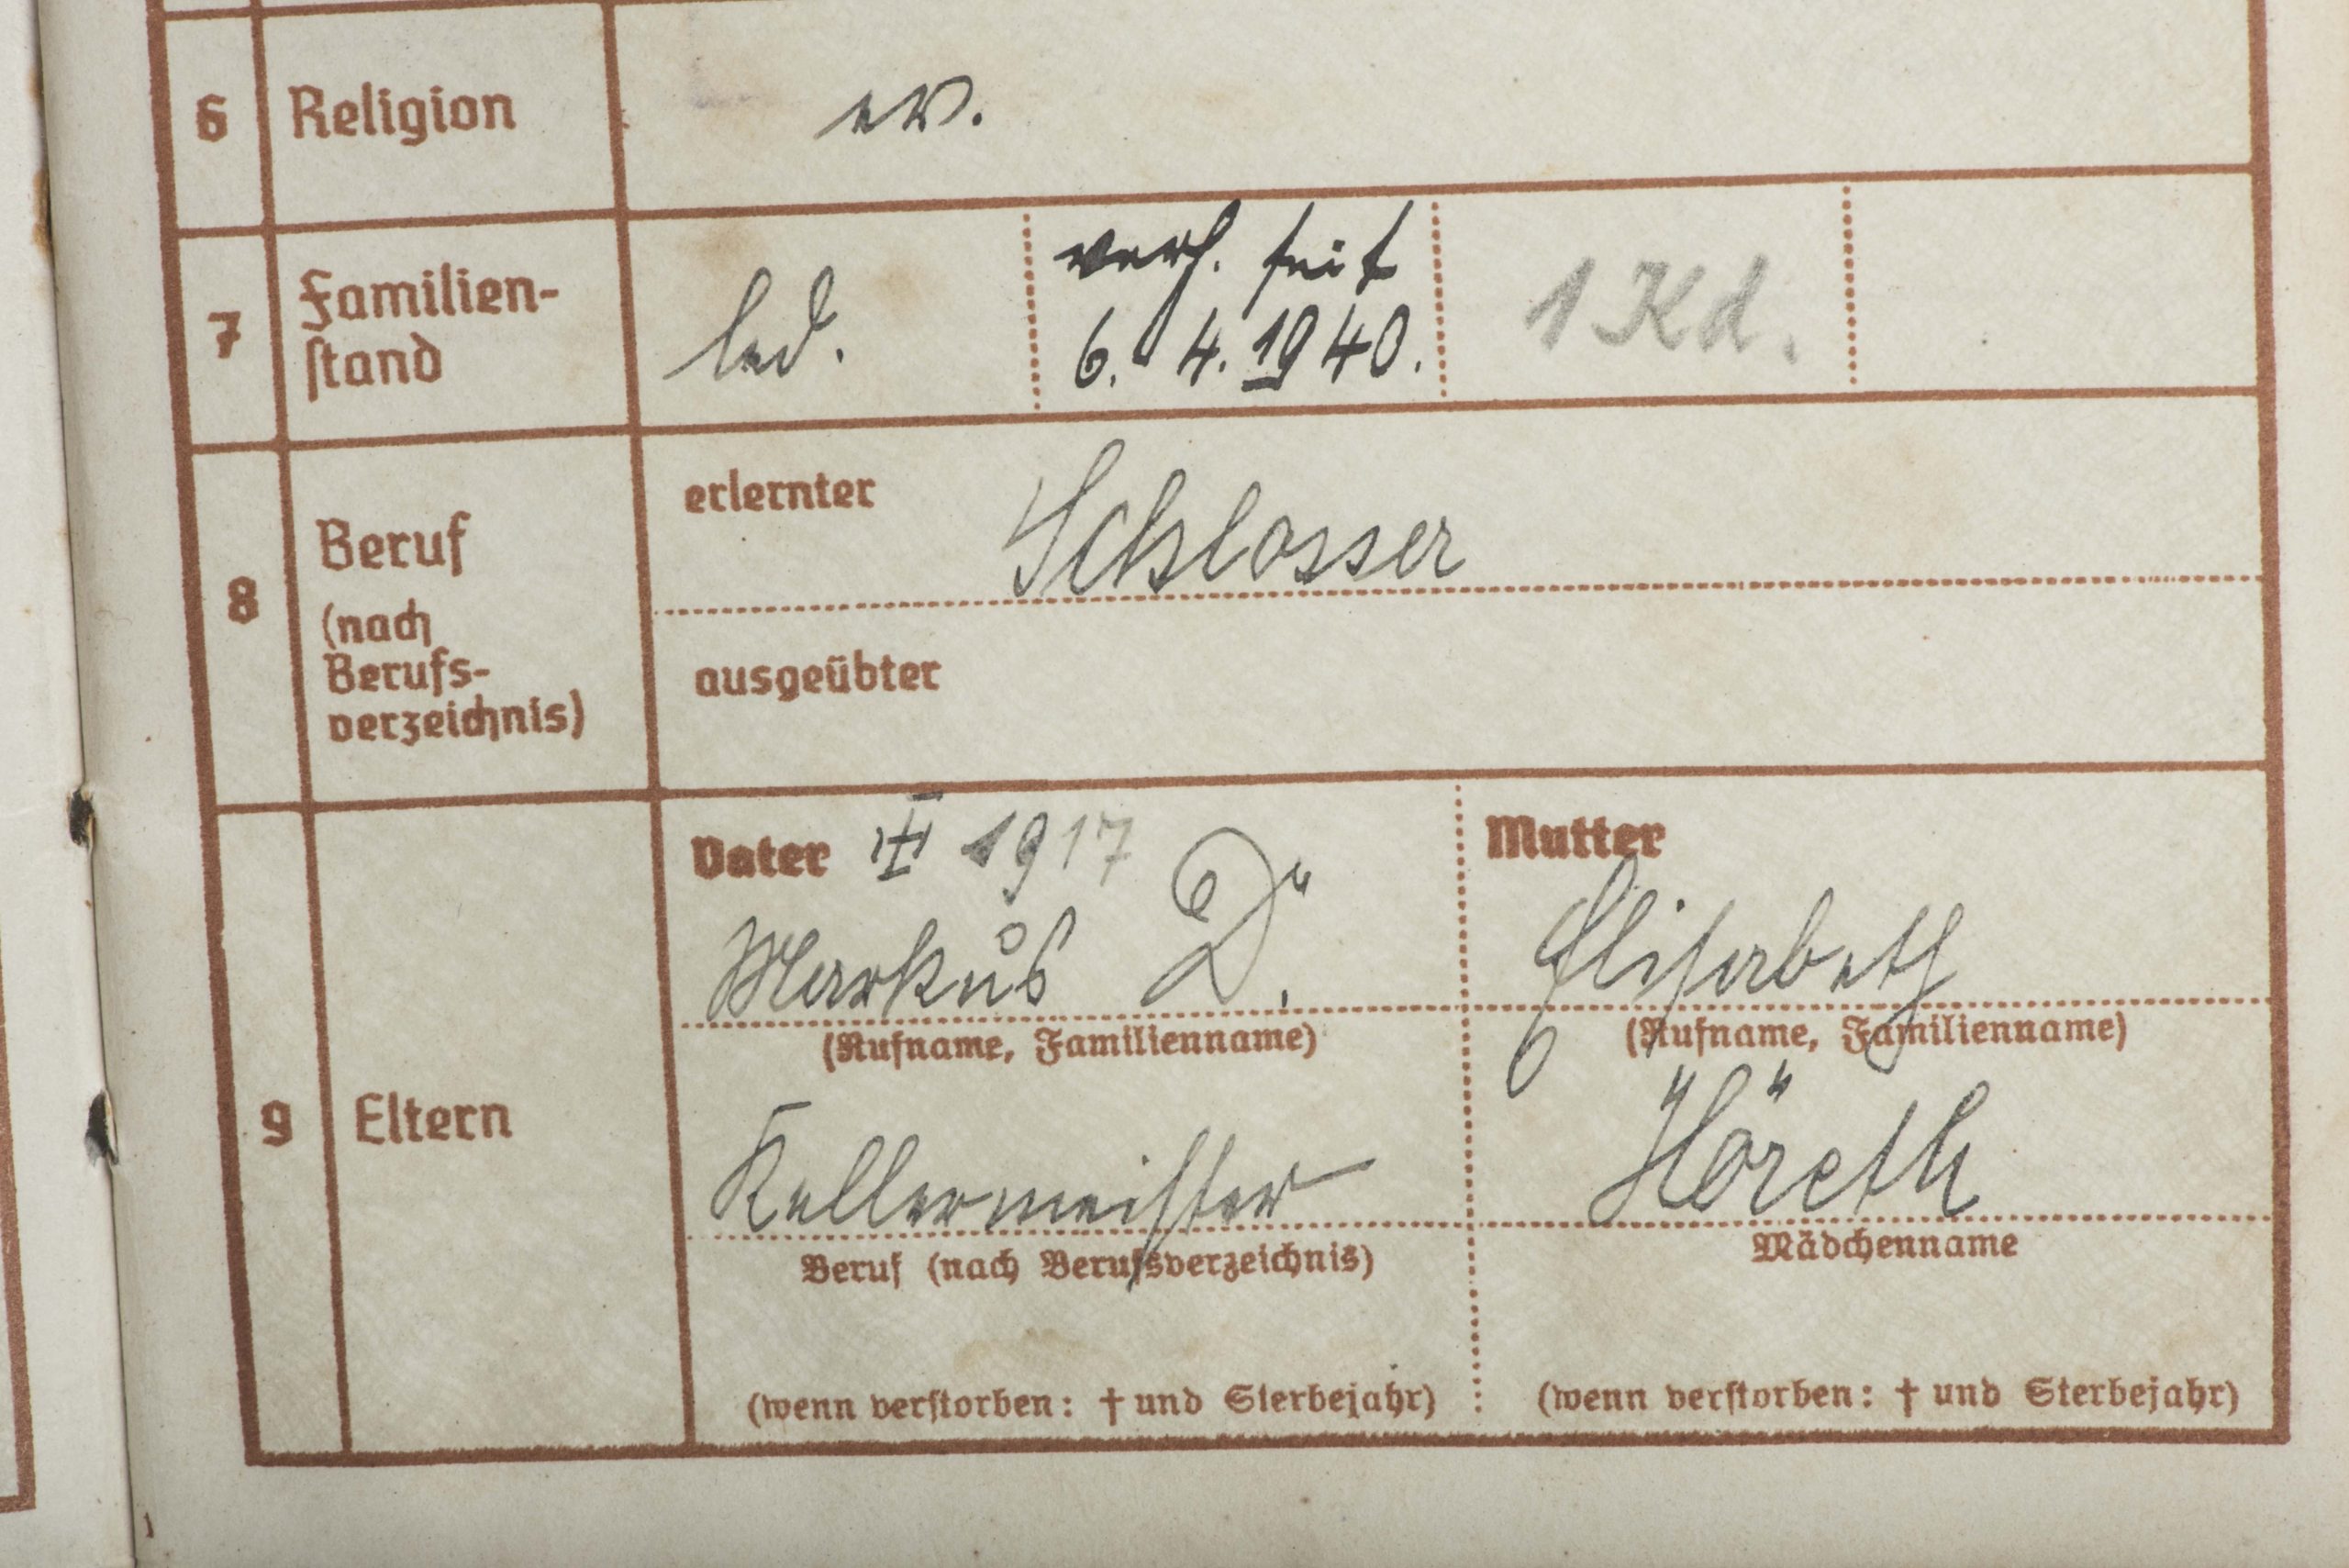 6 Religion ev.
7 Familien-
stand
led.
verh. seit
6. 4. 1940.
1 Kd.
8 Beruf
(nach
Berufs-
verzeichnis)
erlernter Schlosser
ausgeübter
9 Eltern
Vater 1917
Markus D.
(Rufname, Familienname)
Kellermeister
Beruf (nach Berufsverzeichnis)
(wenn verstorben: † und Sterbejahr)
Mutter
Elisabeth
(Rufname, Familienname)
Höreth
Mädchenname
(wenn verstorben: † und Sterbejahr)